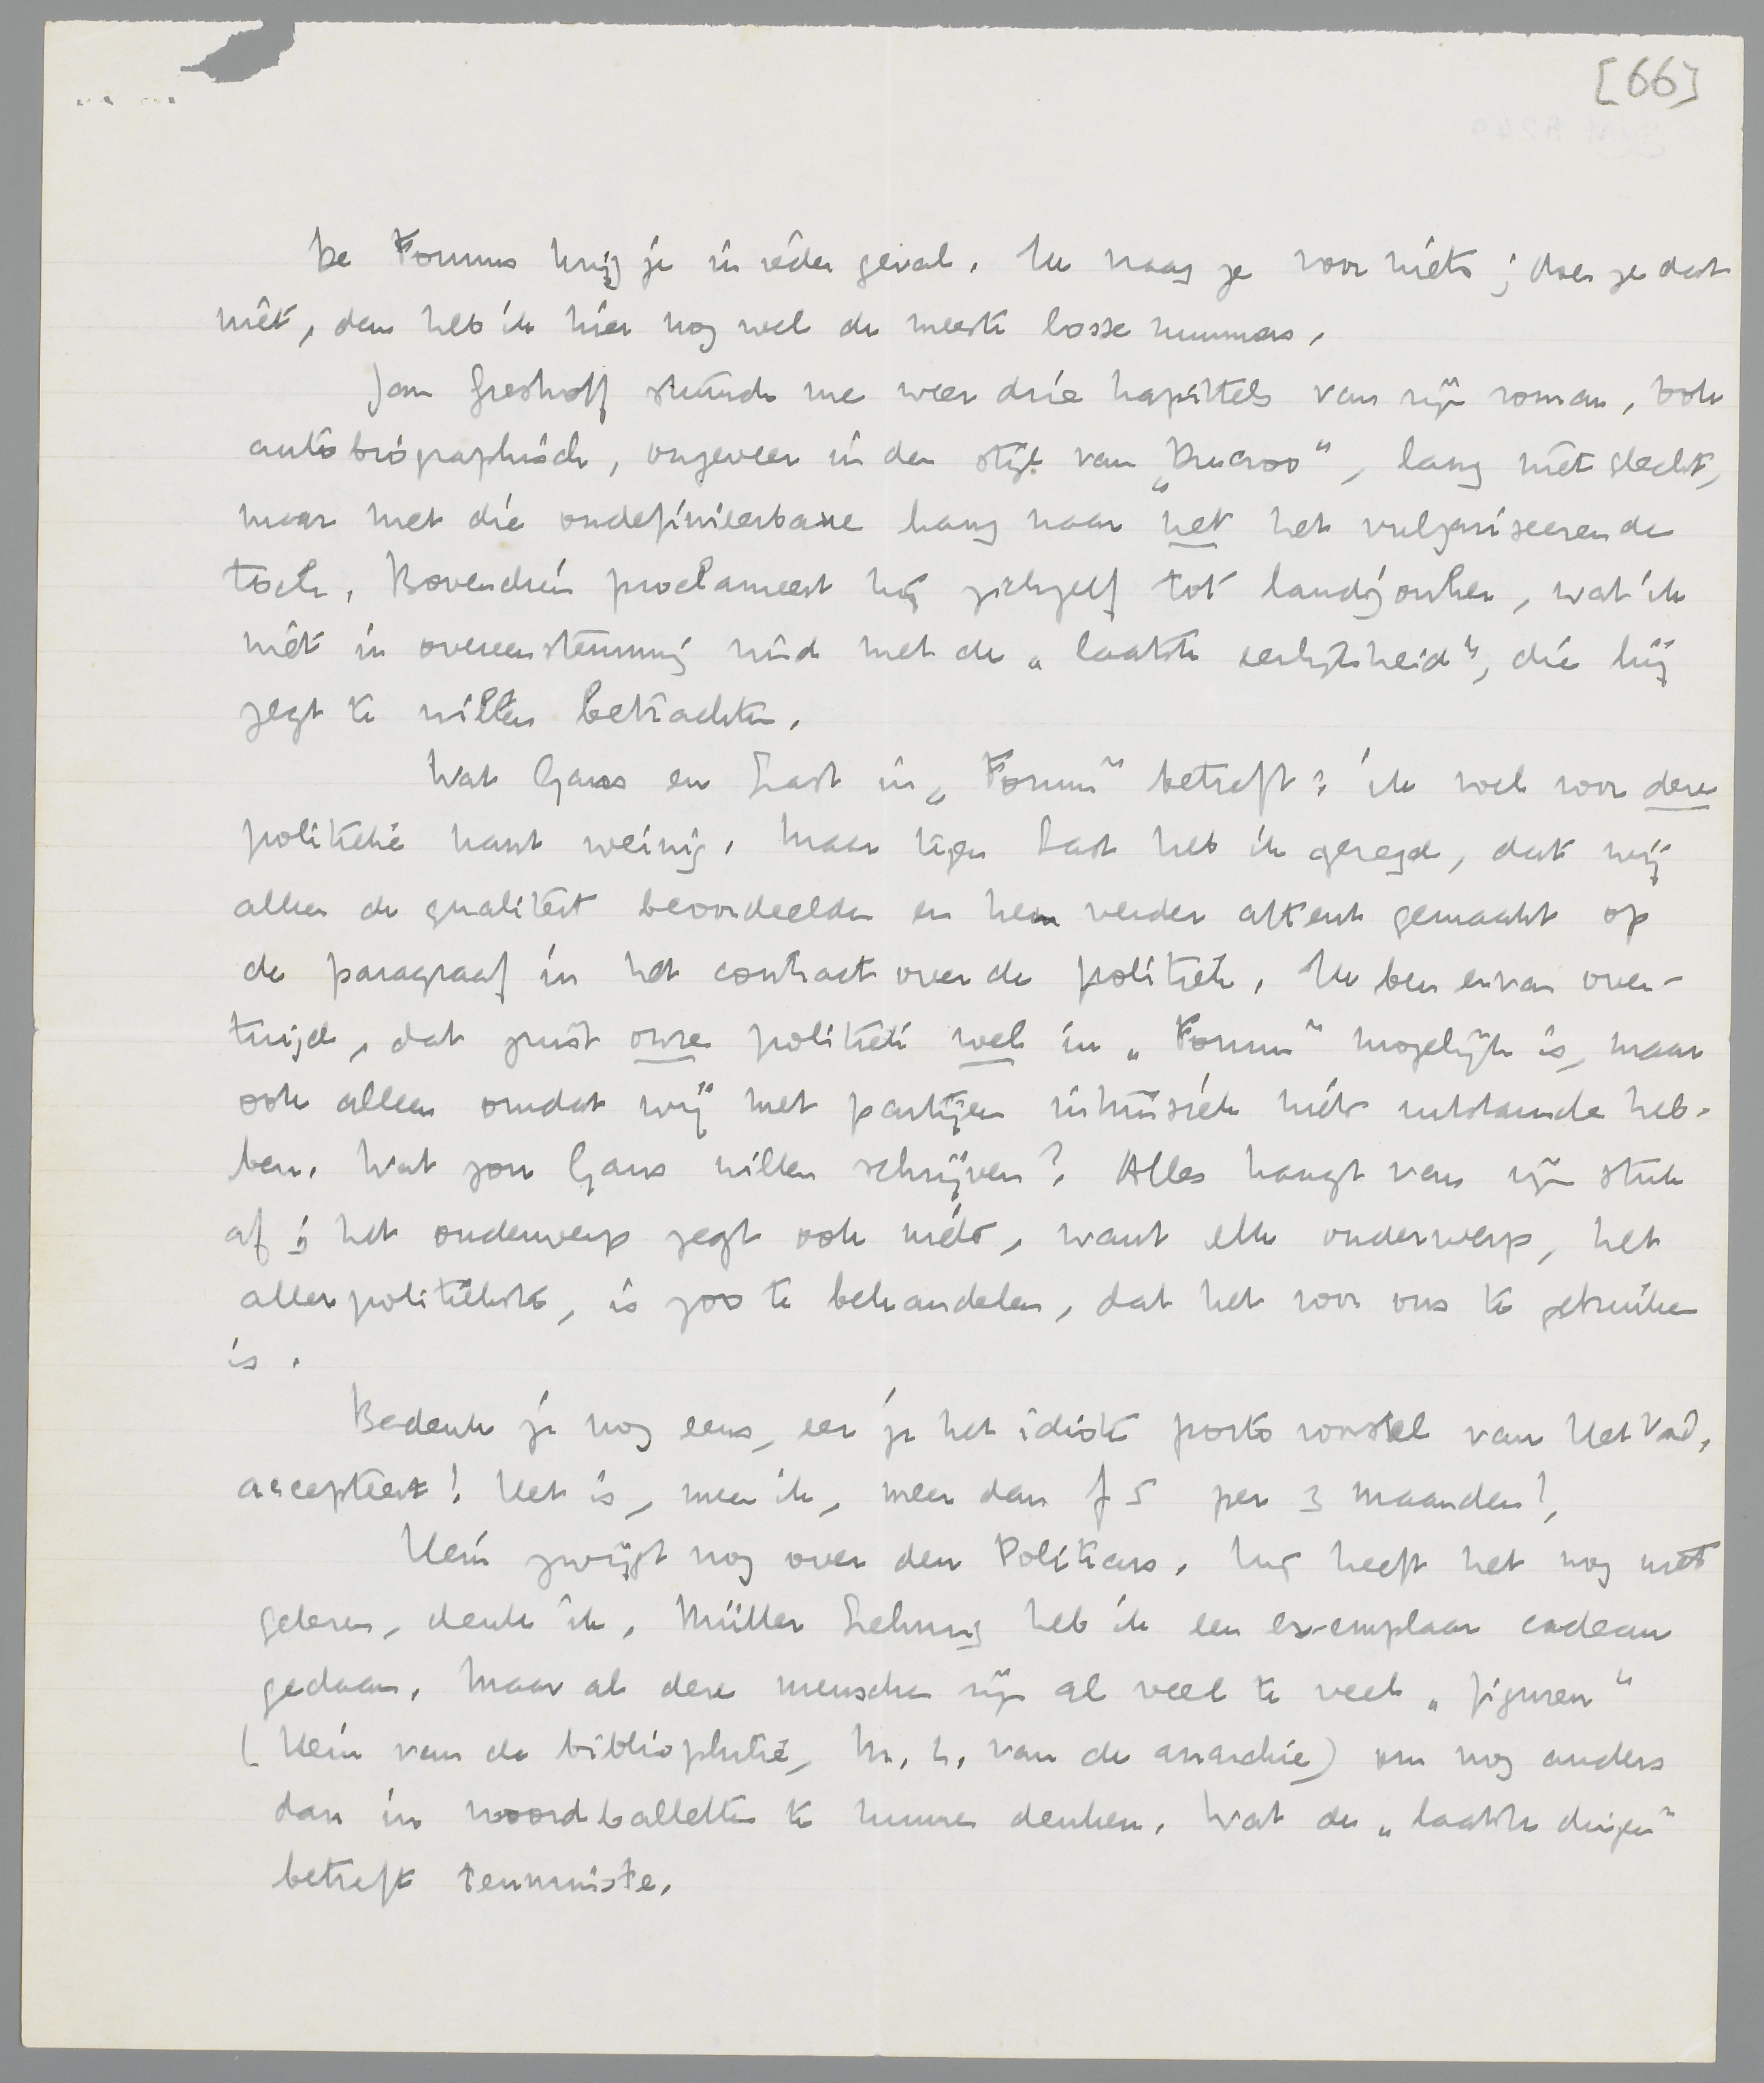 [66]
De Forums krijg je in ieder geval. Ik vraag ze voor niets; doen ze dat
niet, dan heb ik hier nog wel de meeste losse nummers.
Jan Greshoff stuurde me weer drie kapittels van zijn roman, ook
autobiographisch, ongeveer in den stijl van „Ducroo”, lang niet slecht,
maar met die ondefinieerbare hang naar het het vulgariseerende
toch. Bovendien proclameert hij zichzelf tot landjonker, wat ik
niet in overeenstemming vind met de „laatste eerlijkheid”, die hij
zegt te willen betrachten.
Wat Gans en Last in „Forum” betreft: ik voel voor deze
politieke kant weinig. Maar tegen Last heb ik gezegd, dat wij
alleen de qualiteit beoordeelden en hem verder attent gemaakt op
de paragraaf in het contract over de politiek. Ik ben ervan over-
tuigd, dat juist onze politiek wel in „Forum” mogelijk is, maar
ook alleen omdat wij met partijen intrinsiek niets uitstaande heb-
ben. Wat zou Gans willen schrijven? Alles hangt van zijn stuk
af; het onderwerp zegt ook niets, want elk onderwerp, het
allerpolitiekste, is zoo te behandelen, dat het voor ons te gebruiken
is.
Bedenk je nog eens, eer je het idiote porto voorstel van Het Vad.
accepteert! Het is, meen ik, meer dan f 5 per 3 maanden!
Hein zwijgt nog over den Politicus. Hij heeft het nog niet
gelezen, denk ik. Müller Lehning heb ik een exemplaar cadeau
gedaan. Maar al deze menschen zijn al veel te veel „figuren”
(Hein van de bibliophilie, M. L. van de anarchie) om nog anders
dan in woordballetten te kunnen denken. Wat de „laatste dingen”
betreft tenminste.